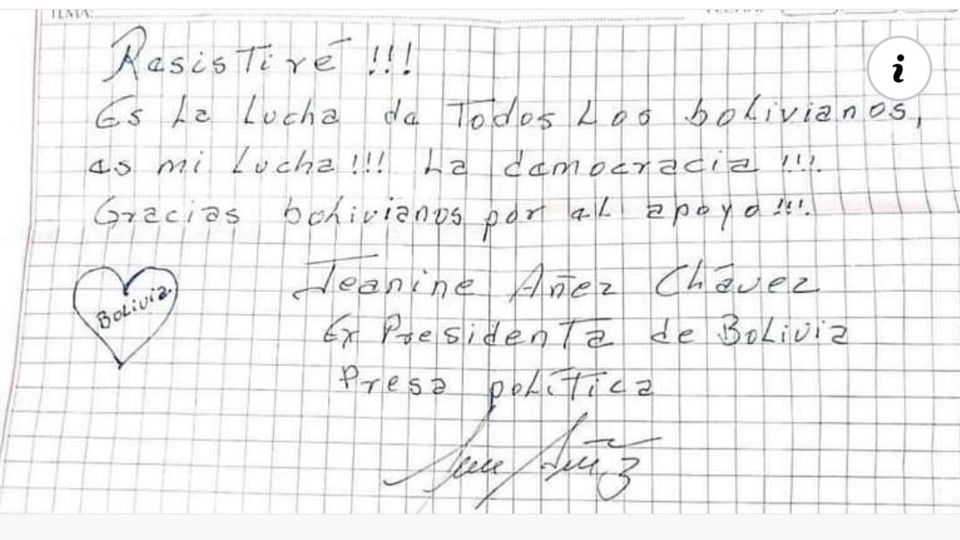 TEMA:
Resistiré !!!
Es La Lucha de Todos Los bolivianos,
es mi Lucha!!! La democracia !!!.
Gracias bolivianos por el apoyo!!!.
Jeanine Añez Chávez
Ex Presidenta de Bolivia
Presa política
BoLivia
i